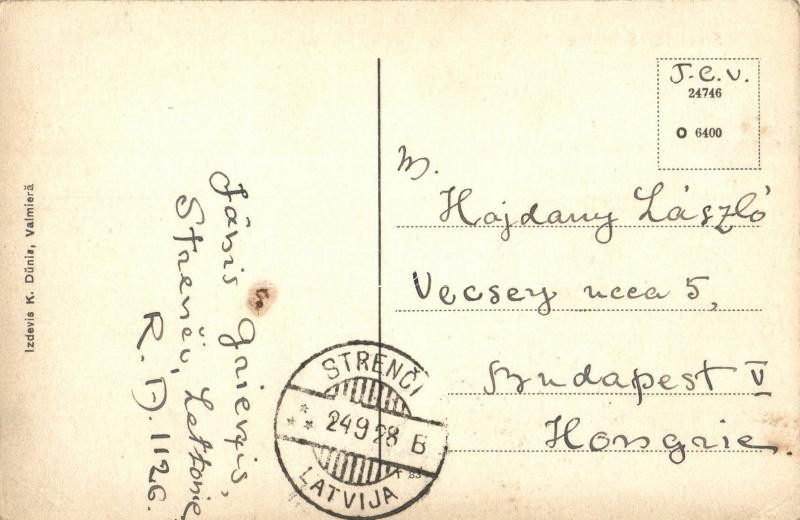 Izdevis K. Dūnis, Valmierā
Jānis Grievzis,
Strenči, Lettonie
R. D. 1126.
STRENČI
24 9 28 B
LATVIJA
T.C.V.
24746
O 6400
M.
Hajdany László
Vecsey ucca 5,
Budapest V
Hongrie.